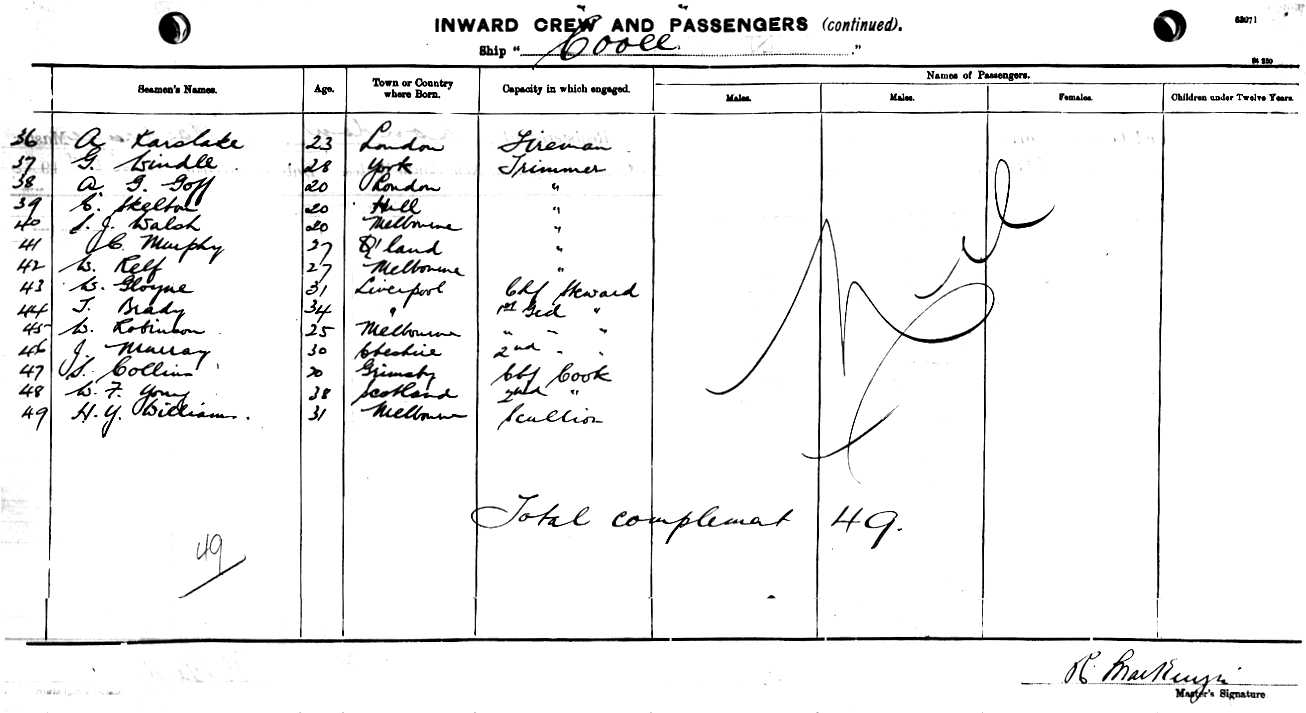 INWARD CREW AND PASSENGERS (continued).
63071
Ship " Cooee "
84 250
Seamen's Names. Age. Town or Country where Born. Capacity in which engaged. Names of Passengers.
Males. Males. Females. Children under Twelve Years.
36 A. Karslake 23 London Fireman
37 G. Windle 28 York Trimmer
38 A. G. Goff 20 London "
39 C. Skelton 20 Hull "
40 S. J. Walsh 20 Melbourne "
41 J C. Murphy 27 Q'land "
42 W. Relf 27 Melbourne "
43 W. Gloyne 31 Liverpool Chf Steward
44 T. Brady 34 " 1st Grd "
45 W. Robinson 25 Melbourne " " "
46 J. Murray 30 Cheshire 2nd " "
47 S. Collins 20 Grimsby Chf Cook
48 W. F. Young 38 Scotland 2nd "
49 H. Y. Williams. 31 Melbourne Scullion
Nil
Total complemat 49.
49
R. MacKenzie
Master's Signature